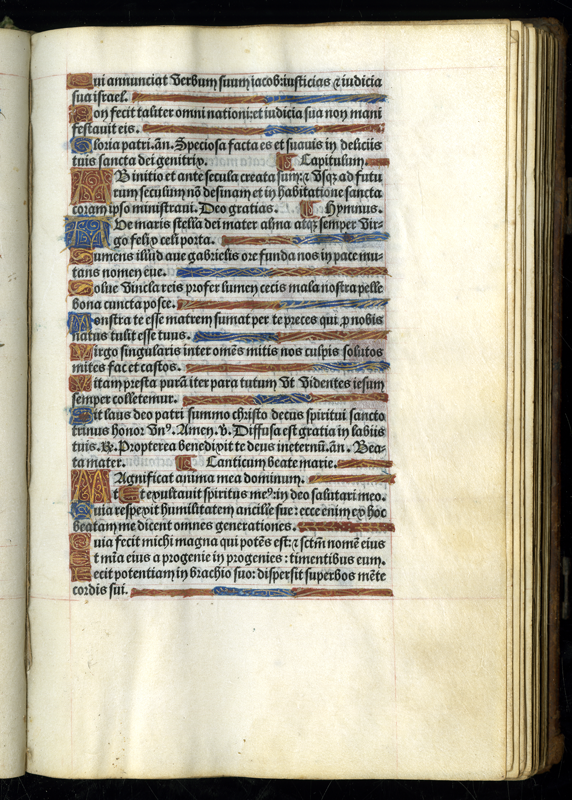 Qui annunciat verbum suum iacob: iusticias ⁊ iudicia
sua israel.
Non fecit taliter omni nationi: et iudicia sua non mani
festauit eis.
Gloria patri. añ. Speciosa facta es et suauis in deliciis
tuis sancta dei genitrix. Capitulum.
AB initio et ante secula creata sum: ⁊ vsqꝫ ad futu
rum seculum nõ desinam et in habitatione sancta
coram ipso ministraui. Deo gratias. Hymnus.
AUe maris stella dei mater alma atqꝫ semper vir-
go felix celi porta.
Sumens illud aue gabrielis ore funda nos in pace mu-
tans nomen eue.
Solue vincla reis profer lumen cecis mala nostra pelle
bona cuncta posce.
Monstra te esse matrem sumat per te preces qui ꝓ nobis
natus tulit esse tuus.
Virgo singularis inter omẽs mitis nos culpis solutos
mites fac et castos.
Vitam presta purã iter para tutum vt videntes iesum
semper colletemur.
Sit laus deo patri summo christo decus spiritui sancto
trinus honor vnꝰ. Amen. v̉. Diffusa est gratia in labiis
tuis. ℟. Propterea benedixit te deus ineternũ. añ. Bea-
ta mater. Canticum beate marie.
MAgnificat anima mea dominum.
Et exultauit spiritus meꝰ: in deo salutari meo.
Quia respexit humilitatem ancille sue: ecce enim ex hoc
beatam me dicent omnes generationes.
Quia fecit michi magna qui potẽs est: ⁊ sctm̃ nomẽ eius
Et mĩa eius a progenie in progenies: timentibus eum.
Fecit potentiam in brachio suo: dispersit superbos mẽte
cordis sui.